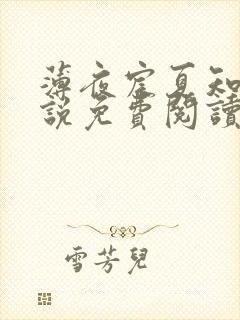 薄夜宦夏知
說免費閱讀
雪芳兒